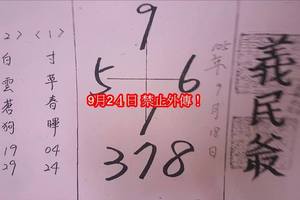 <1>
寸草春暉
04
24
2>
白雲蒼狗
19
29
9
5 6
378
9月24日 禁止外傳！
年9月18日
義民爺